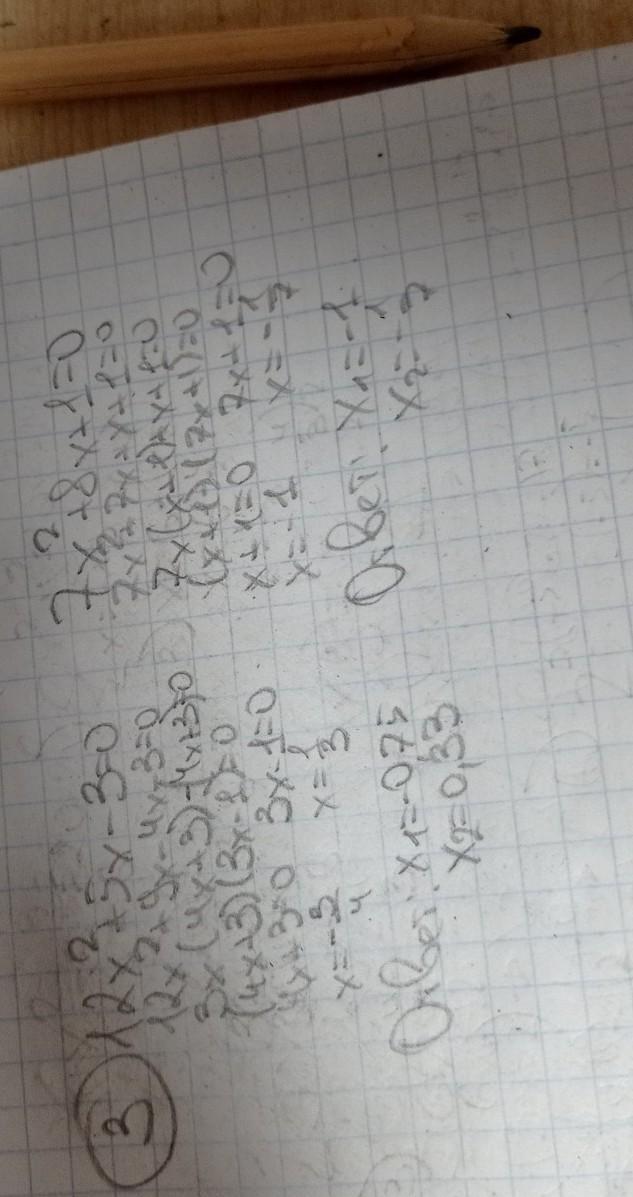 3
12x²+5x-3=0
12x²+9x-4x-3=0
3x(4x+3)-(4x+3)=0
(4x+3)(3x-1)=0
4x+3=0 3x-1=0
x=-3/4 x=1/3
Ответ: x1=-0,75
x2=0,33
7x²+8x+1=0
7x²+7x+x+1=0
7x(x+1)+x+1=0
(x+1)(7x+1)=0
x+1=0 7x+1=0
x=-1 x=-1/7
Ответ: x1=-1
x2=-1/7